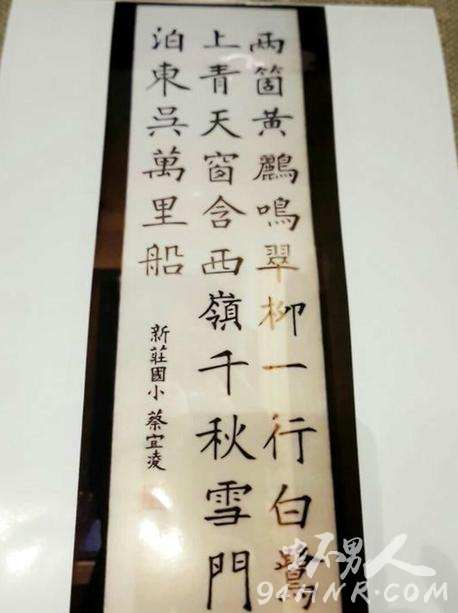 兩箇黃鸝鳴翠柳一行白鷺
上青天窗含西嶺千秋雪門
泊東吳萬里船
新莊國小 蔡宜凌
男人
94HNR.COM